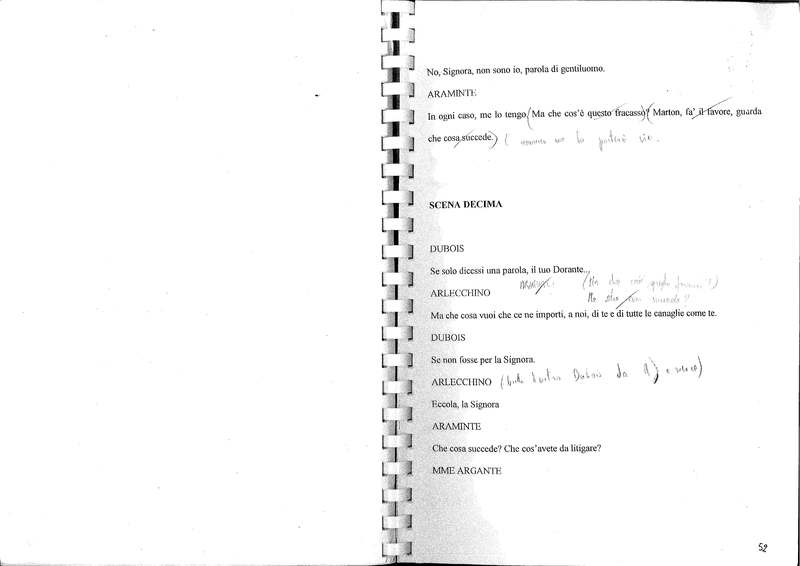 No, Signora, non sono io, parola di gentiluomo.
ARAMINTE
In ogni caso, me lo tengo (Ma che cos'è questo fracasso)? (Marton, fa' il favore, guarda
che cosa succede.) ( nessuno me lo porterà via.
SCENA DECIMA
DUBOIS
Se solo dicessi una parola, il tuo Dorante...
(Ma che cos'è questo fracasso?)
ARLECCHINO
Ma che cosa succede?
Ma che cosa vuoi che ce ne importi, a noi, di te e di tutte le canaglie come te.
DUBOIS
Se non fosse per la Signora.
ARLECCHINO ( Dubois da
Eccola, la Signora
ARAMINTE
Che cosa succede? Che cos'avete da litigare?
MME ARGANTE
52